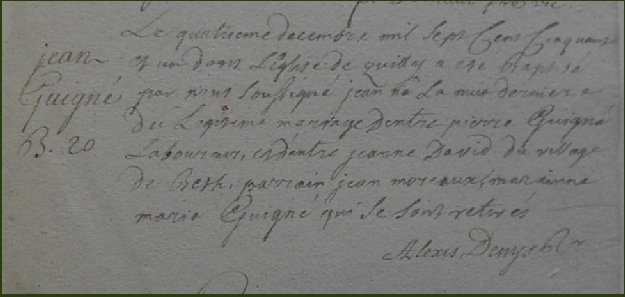 Le quatrieme decembre mil sept Cent Cinquante
et un dans L'Eglise de quilly a été Baptisé
par nous Soussigné jean né La nuit derniere
du Legitime mariage Dentre pierre Guigné
Laboureur, et dentre jeanne David du village
de parrain jean moreaux, marainne
marie Guigné qui Se Sont retirés
Alexis Denys
jean
Guigné
B. 20